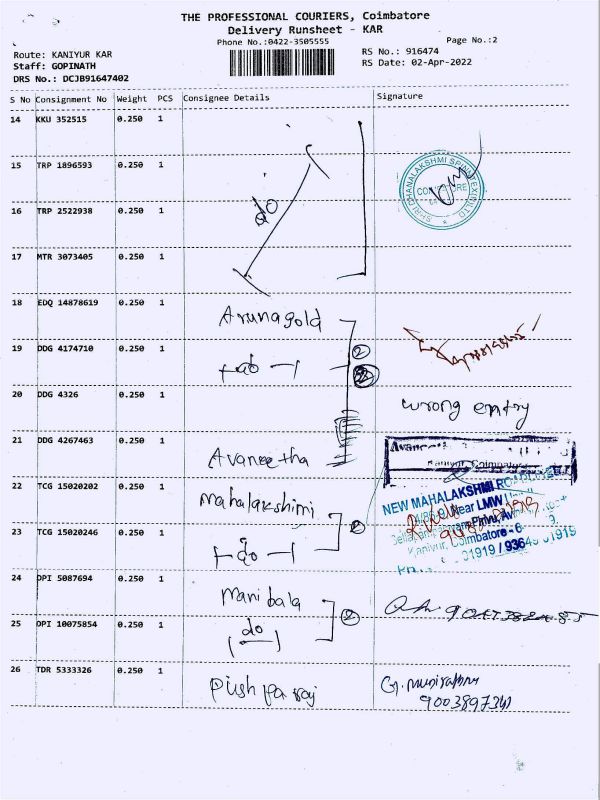 THE PROFESSIONAL COURIERS, Coimbatore
Delivery Runsheet - KAR
Phone No.:0422-3505555
Page No.:2
Route: KANIYUR KAR
RS No.: 916474
Staff: GOPINATH
RS Date: 02-Apr-2022
DRS No.: DCJB91647402
S No Consignment No Weight PCS Consignee Details Signature
14 KKU 352515 0.250 1
15 TRP 1896593 0.250 1
do
SHRI DHANALAKSHMI SPINTEX (P) LTD
16 TRP 2522938 0.250 1
17 MTR 3073405 0.250 1
18 EDQ 14878619 0.250 1 Arunagold
19 DDG 4174710 0.250 1 do 2
20 DDG 4326 0.250 1 wrong entry
21 DDG 4267463 0.250 1 Avaneetha
Kaniyur, Coimbatore
22 TCG 15020202 0.250 1 Mahalakshimi
NEW MAHALAKSHMI
Near LMW
23 TCG 15020246 0.250 1 do 2
Kaniyur, Coimbatore - 6
24 DPI 5087694 0.250 1 Mani bala 2
25 DPI 10075854 0.250 1 do
26 TDR 5333326 0.250 1 Pushparaj
9003897341